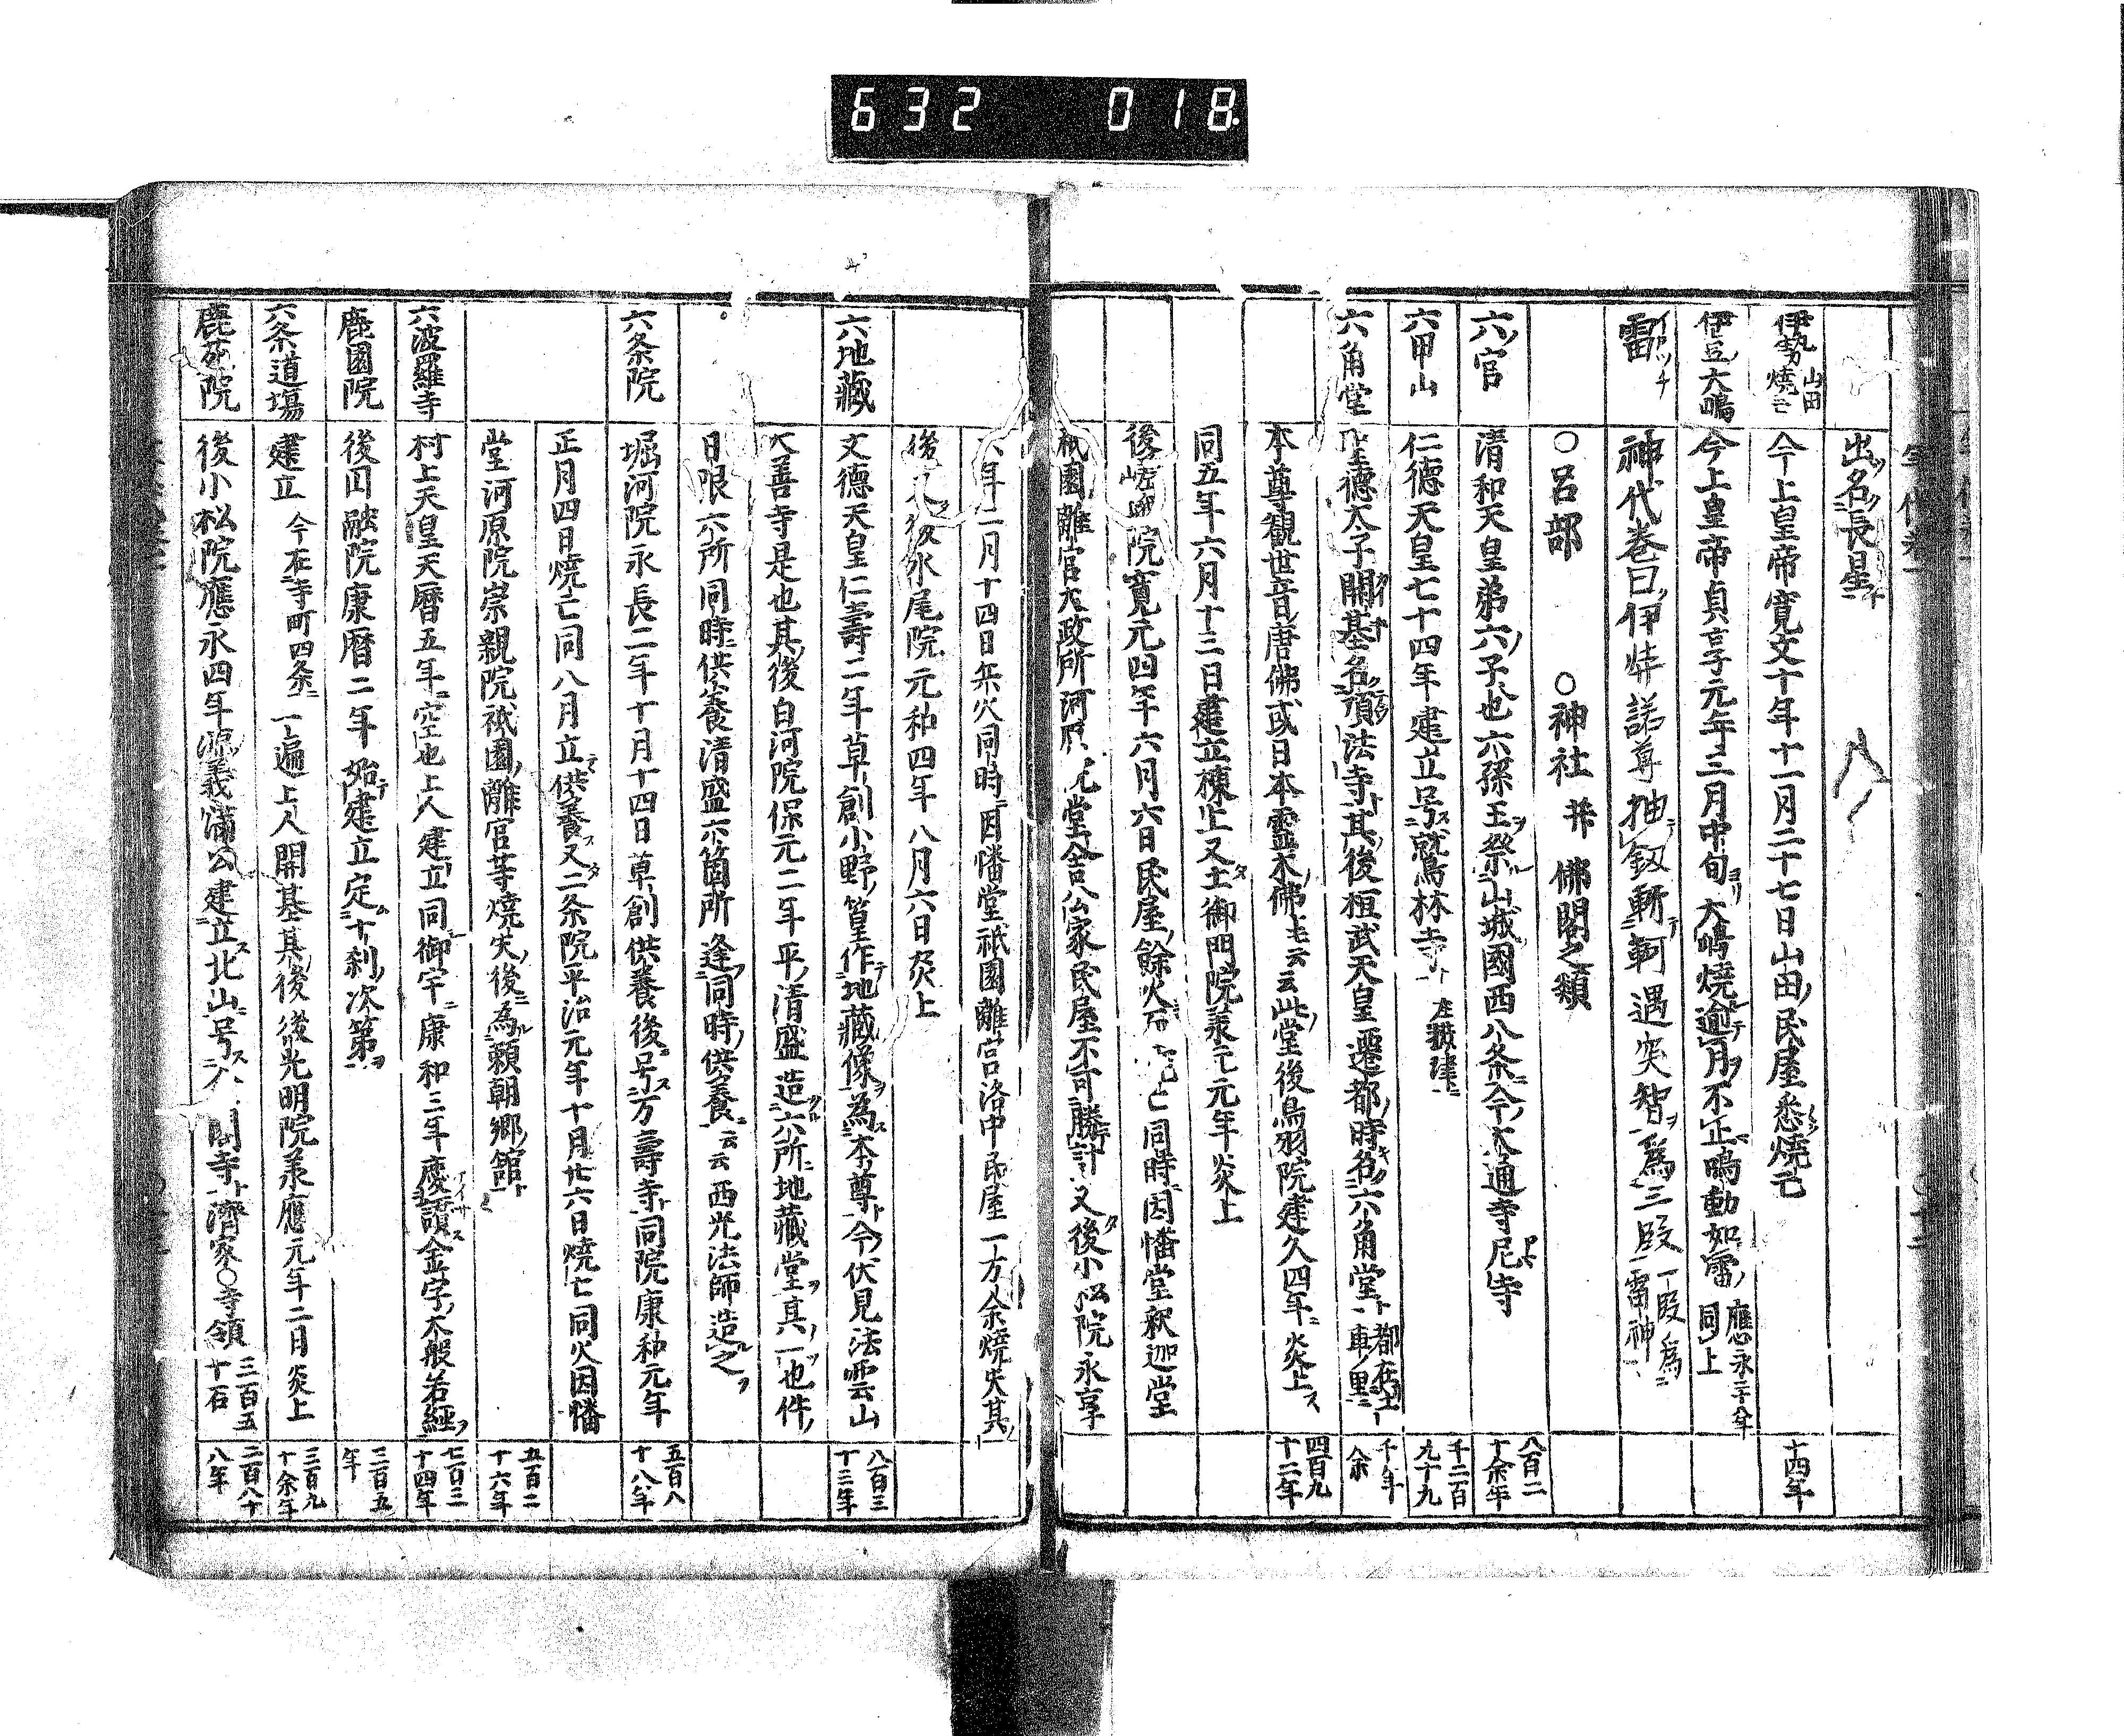 632 018
出名長星
伊勢山田焼亡 今上皇帝寛文十年十一月二十七日山田民屋悉焼亡 十四年
伊豆大鳴 今上皇帝貞享元年三月中旬大鳴焼逾月不正鳴動如雷 同上
雷 神代巻曰伊弉諾尊抽釼斬軻遇突智為三段一段為雷神
○呂部 ○神社 并 佛閣之類
六ノ宮 清和天皇弟六ノ子也六孫王祭山城國西八条今大通寺尼寺 八百二十余年
六甲山 仁德天皇七十四年建立号鷲林寺 在摂津 千二百九十九
六角堂 聖德太子開基名頂法寺其後桓武天皇遷都時名六角堂 千年余
本尊観世音唐佛或日本霊木佛云云此堂後鳥羽院建久四年炎上 四百九十二年
同五年六月十三日建立棟上又土御門院承元元年炎上
後嵯峨院寛元四年六月六日民屋餘火 同時因幡堂釈迦堂
祇園離宮大政所河原 堂舎公家民屋不可勝計又後小松院永享
年二月十四日 火同時因幡堂祇園離宮洛中民屋一方余焼失其
後又後水尾院元和四年八月六日炎上
六地藏 文德天皇仁壽二年草創小野篁作地藏像為本尊今伏見法雲山 八百三十三年
大善寺是也其後白河院保元二年平清盛造六所地藏堂其一也件
日限六所同時供養清盛六箇所逢同時供養云云西光法師造之
六条院 堀河院永長二年十月十四日草創供養後号万壽寺同院康和元年 五百八十八年
正月四日焼亡同八月立供養又二条院平治元年十月廿六日焼亡同火因幡
堂河原院崇親院祇園離宮等焼失後為頼朝郷館 五百二十六年
六波羅寺 村上天皇天暦五年空也上人建立同御宇康和三年慶讃金字大般若経 七百三十四年
鹿園院 後円融院康暦二年始建立定十刹次第 三百五年
六条道場 建立今在寺町四条一遍上人開基其後後光明院承應元年二日炎上 三百九十余年
鹿苑院 後小松院應永四年源義満公建立北山号 閣寺濟家○寺領三百五十石 二百八十八年